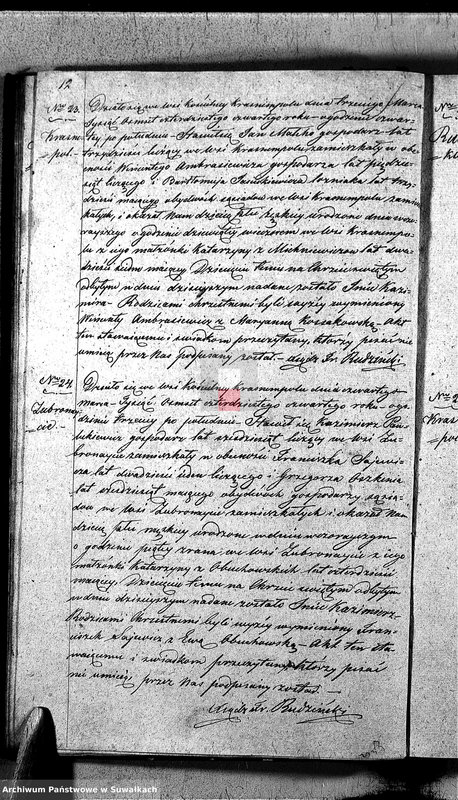 12
No 23.
Krasno-
pol.
Działo się we wsi kościelnej Krasnympolu dnia trzeciego Marca
Tysiąc Osmset czterdziestego czwartego roku o godzinie czwar-
tey po południu. Stawił się Jan gospodarz lat
trzydzieści liczący we wsi Krasnympolu zamieszkały w obe-
cności Wincentego Ambrasiewicza gospodarza lat pięćdzie-
siąt liczącego i Bartłomieja lat trzy-
dzieści mającego obydwóch sąsiadów we wsi Krasnympolu zamie-
szkałych, i okazał Nam dziecię płci męzkiej urodzone dnia wczo-
rayszego o godzinie dziewiątej wieczorem we wsi Krasnympo-
lu z jego małżonki Katarzyny z lat dwa-
dzieścia mającej. Dziecięciu temu na Chrzcie świętym
odbytym w dniu dzisiejszym nadane zostało Imię Kazi-
mierz. Rodzicami chrzestnemi byli wyżej wymieniony
Wincenty Ambrasiewicz z Maryanną Kossakowską. Akt
ten stawającemu i świadkom przeczytany, którzy pisać nie
umieją przez Nas podpisany został. Rudziński
No 24
Żubrony-
cie.
Działo się we wsi kościelnej Krasnympolu dnia czwartego
Marca Tysiąc Osmset czterdziestego czwartego roku o go-
dzinie trzeciej po południu. Stawił się Kazimierz
gospodarz lat liczący we wsi Żu-
bronaycie zamieszkały w obecności Franciszka Sajewi-
cza lat dwadzieścia liczącego i Grzegorza
lat mającego obydwóch gospodarzy sąsia-
dów we wsi Żubronaycie zamieszkałych i okazał Nam
dziecię płci męzkiej urodzone w dniu wczorayszym
o godzinie piątej z rana we wsi Żubronaycie z jego
małżonki Katarzyny z Obuchowskich lat czterdzieści
mającej. Dziecięciu temu na Chrzcie świętym odbytym
w dniu dzisiejszym nadane zostało Imię Kazimierz.
Rodzicami Chrzestnemi byli wyżej wymieniony Fran-
ciszek Sajewicz z Ewą Obuchowską. Akt ten sta-
wającemu i świadkom przeczytany którzy pisać
nie umieją przez Nas podpisany został.
Rudziński
Archiwum Państwowe w Suwałkach